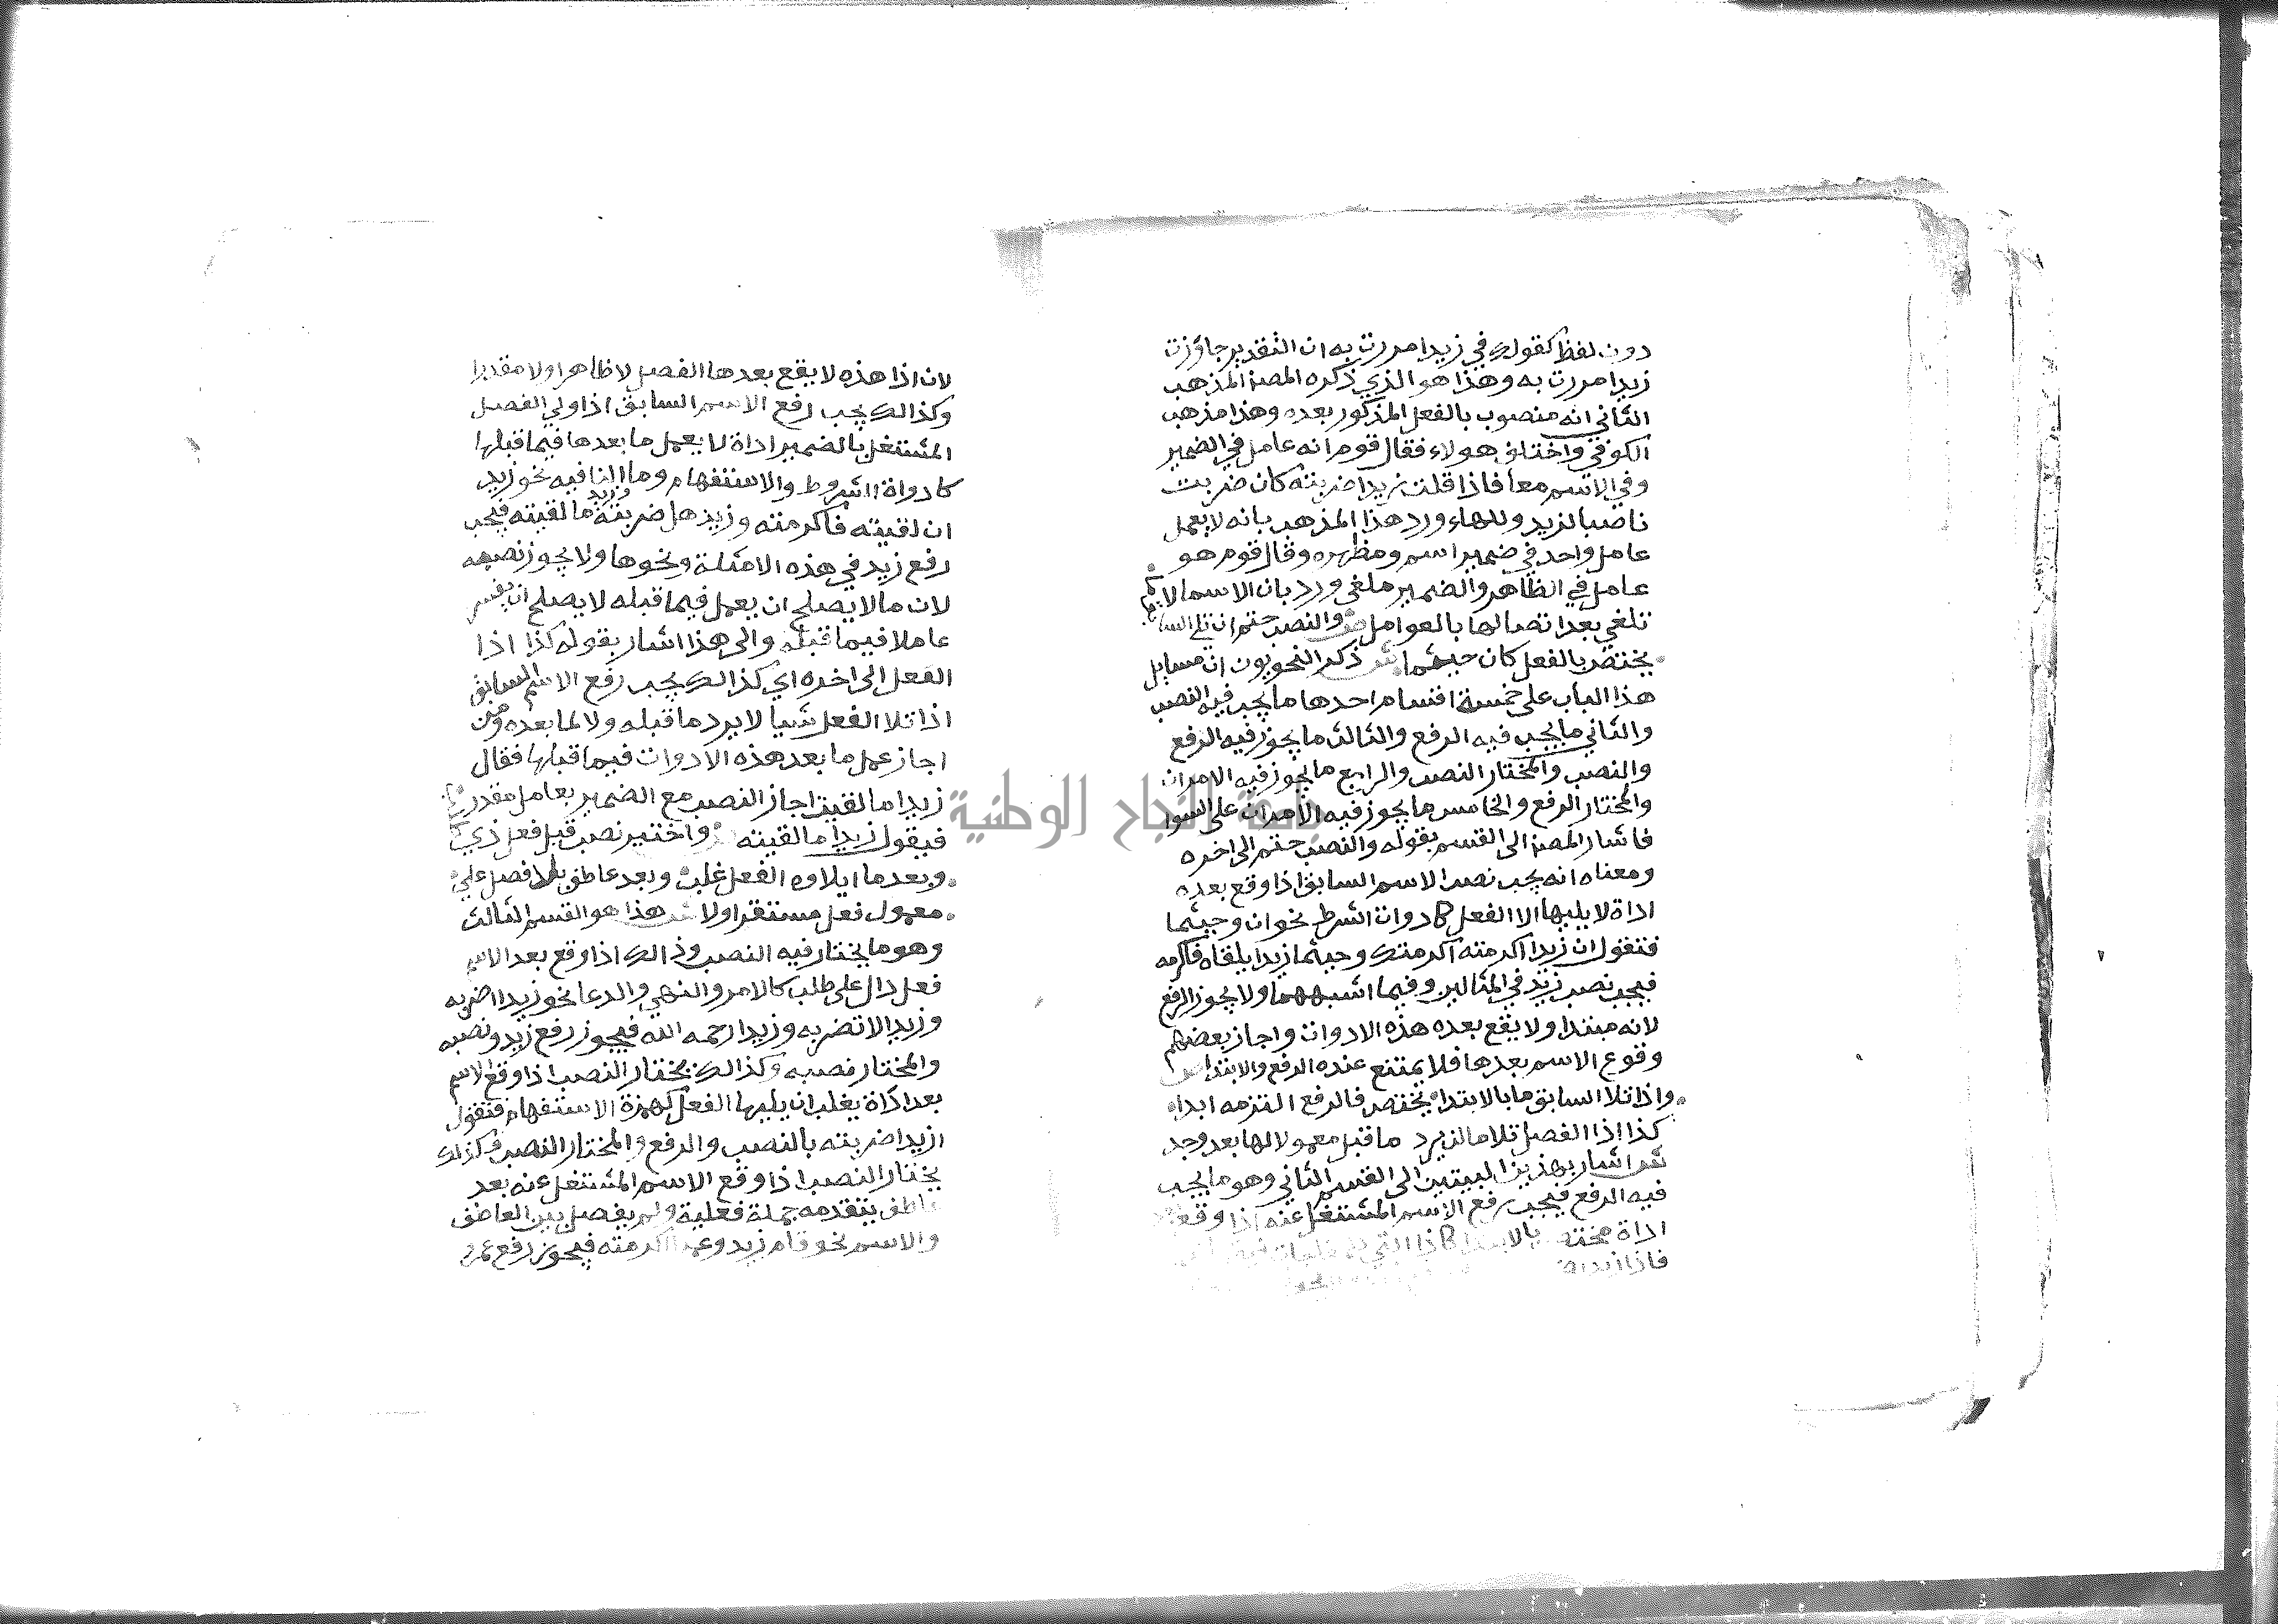 دون لفظ كقولك في زيدا مررت به ان التقدير جاوزت
زيدا مررت به وهذا هو الذي ذكره المصن المذهب
الثاني انه منصوب بالفعل المذكور بعده وهذا مذهب
الكوفي واختلف هولاء فقال قوم انه عامل في الضمير
وفي الاسم معا فاذا قلت زيدا ضربته كان ضربت
ناصبا لزيد وللهاء ورد هذا المذهب بانه لا يعمل
عامل واحد في ضمير اسم ومظهره وقال قوم هو
عامل في الظاهر والضمير ملغى ورد بان الاسما لا
تلغي بعد اتصالها بالعوامل ص والنصب حتم ان تلى السا
يختص بالفعل كان حيثما ش ذكر النحويون ان مسايل
هذا الباب على خمسة اقسام احدها ما يجب فيه النصب
والثاني ما يجب فيه الرفع والثالث ما يجوز فيه الرفع
والنصب والمختار النصب والرابع ما يجوز فيه الامران
والمختار الرفع والخامس ما يجوز فيه الامران على السوا
فاشار المصن الى القسم بقوله والنصب حتم الى اخره
ومعناه انه يجب نصب الاسم السابق اذا وقع بعده
اداة لا يليها الا الفعل كادوات الشرط نحو ان وحيثما
فتقول ان زيدا اكرمته اكرمتك وحيثما زيدا يلقاه فاكرمه
فيجب نصب زيد في المثالين وفيما اشبههما ولا يجوز الرفع
لانه مبتدا ولا يقع بعده هذه الادوات واجاز بعضهم
وقوع الاسم بعدها فلا يمتنع عنده الرفع والابتدا ص
واذا تلا السابق ما بالابتدا يختص فالرفع التزمه ابدا
كذا اذا الفصل تلا ما لن يرد ما قبل معمولا لها بعد وجد
ش اشار بهذين البيتين الى القسم الثاني وهو ما يجب
فيه الرفع فيجب رفع الاسم المشتغل عنه اذا وقع
اداة مختص بالابتدا كاذا التي
فاذا زيد
لان اذا هذه لا يقع بعدها الفصل لا ظاهرا ولا مقدرا
وكذلك يجب رفع الاسم السابق اذا ولي الفصل
المشتغل بالضمير اداة لا يعمل ما بعدها فيما قبلها
كادواة الشروط والاستفهام وما النافيه نحو زيد
ان لقيته فاكرمته وزيد هل ضربته وزيد ما لقيته فيجب
رفع زيد في هذه الامثلة ونحوها ولا يجوز نصبه
لان ما لا يصلح ان يعمل فيما قبله لا يصلح ان يفسر
عاملا فيما قبله والى هذا اشار بقوله كذا اذا
الفعل الى اخره اي كذلك يجب رفع الاسم السابق
اذا تلا الفعل شيا لا يرد ما قبله ولا لما بعده ومن
اجاز عمل ما بعد هذه الادوات فيما قبلها فقال
زيدا ما لقيت اجاز النصب مع الضمير بعامل مقدر
فيقول زيدا ما لقيته ص واختير نصب قبل فعل ذي
وبعد ما ايلاوه الفعل غلب وبعد عاطف بلا فصل على
معمول فعل مستقر اولا ش هذا هو القسم الثالث
وهو ما يختار فيه النصب وذلك اذا وقع بعد الاسم
فعل دال على طلب كالامر والنهي والدعا نحو زيدا اضربه
وزيدا لا تضربه وزيدا رحمه الله فيجوز رفع زيد ونصبه
والمختار نصبه وكذلك يختار النصب اذا وقع الاسم
بعد اداة يغلب ان يليها الفعل كهمزة الاستفهام فتقول
ازيدا ضربته بالنصب والرفع والمختار النصب وكذلك
يختار النصب اذا وقع الاسم المشتغل عنه بعد
عاطف يتقدمه جملة فعلية ولم يفصل بين العاطف
والاسم نحو قام زيد وعمرا اكرمته فيجوز رفع عمرو
جامعة النجاح الوطنية